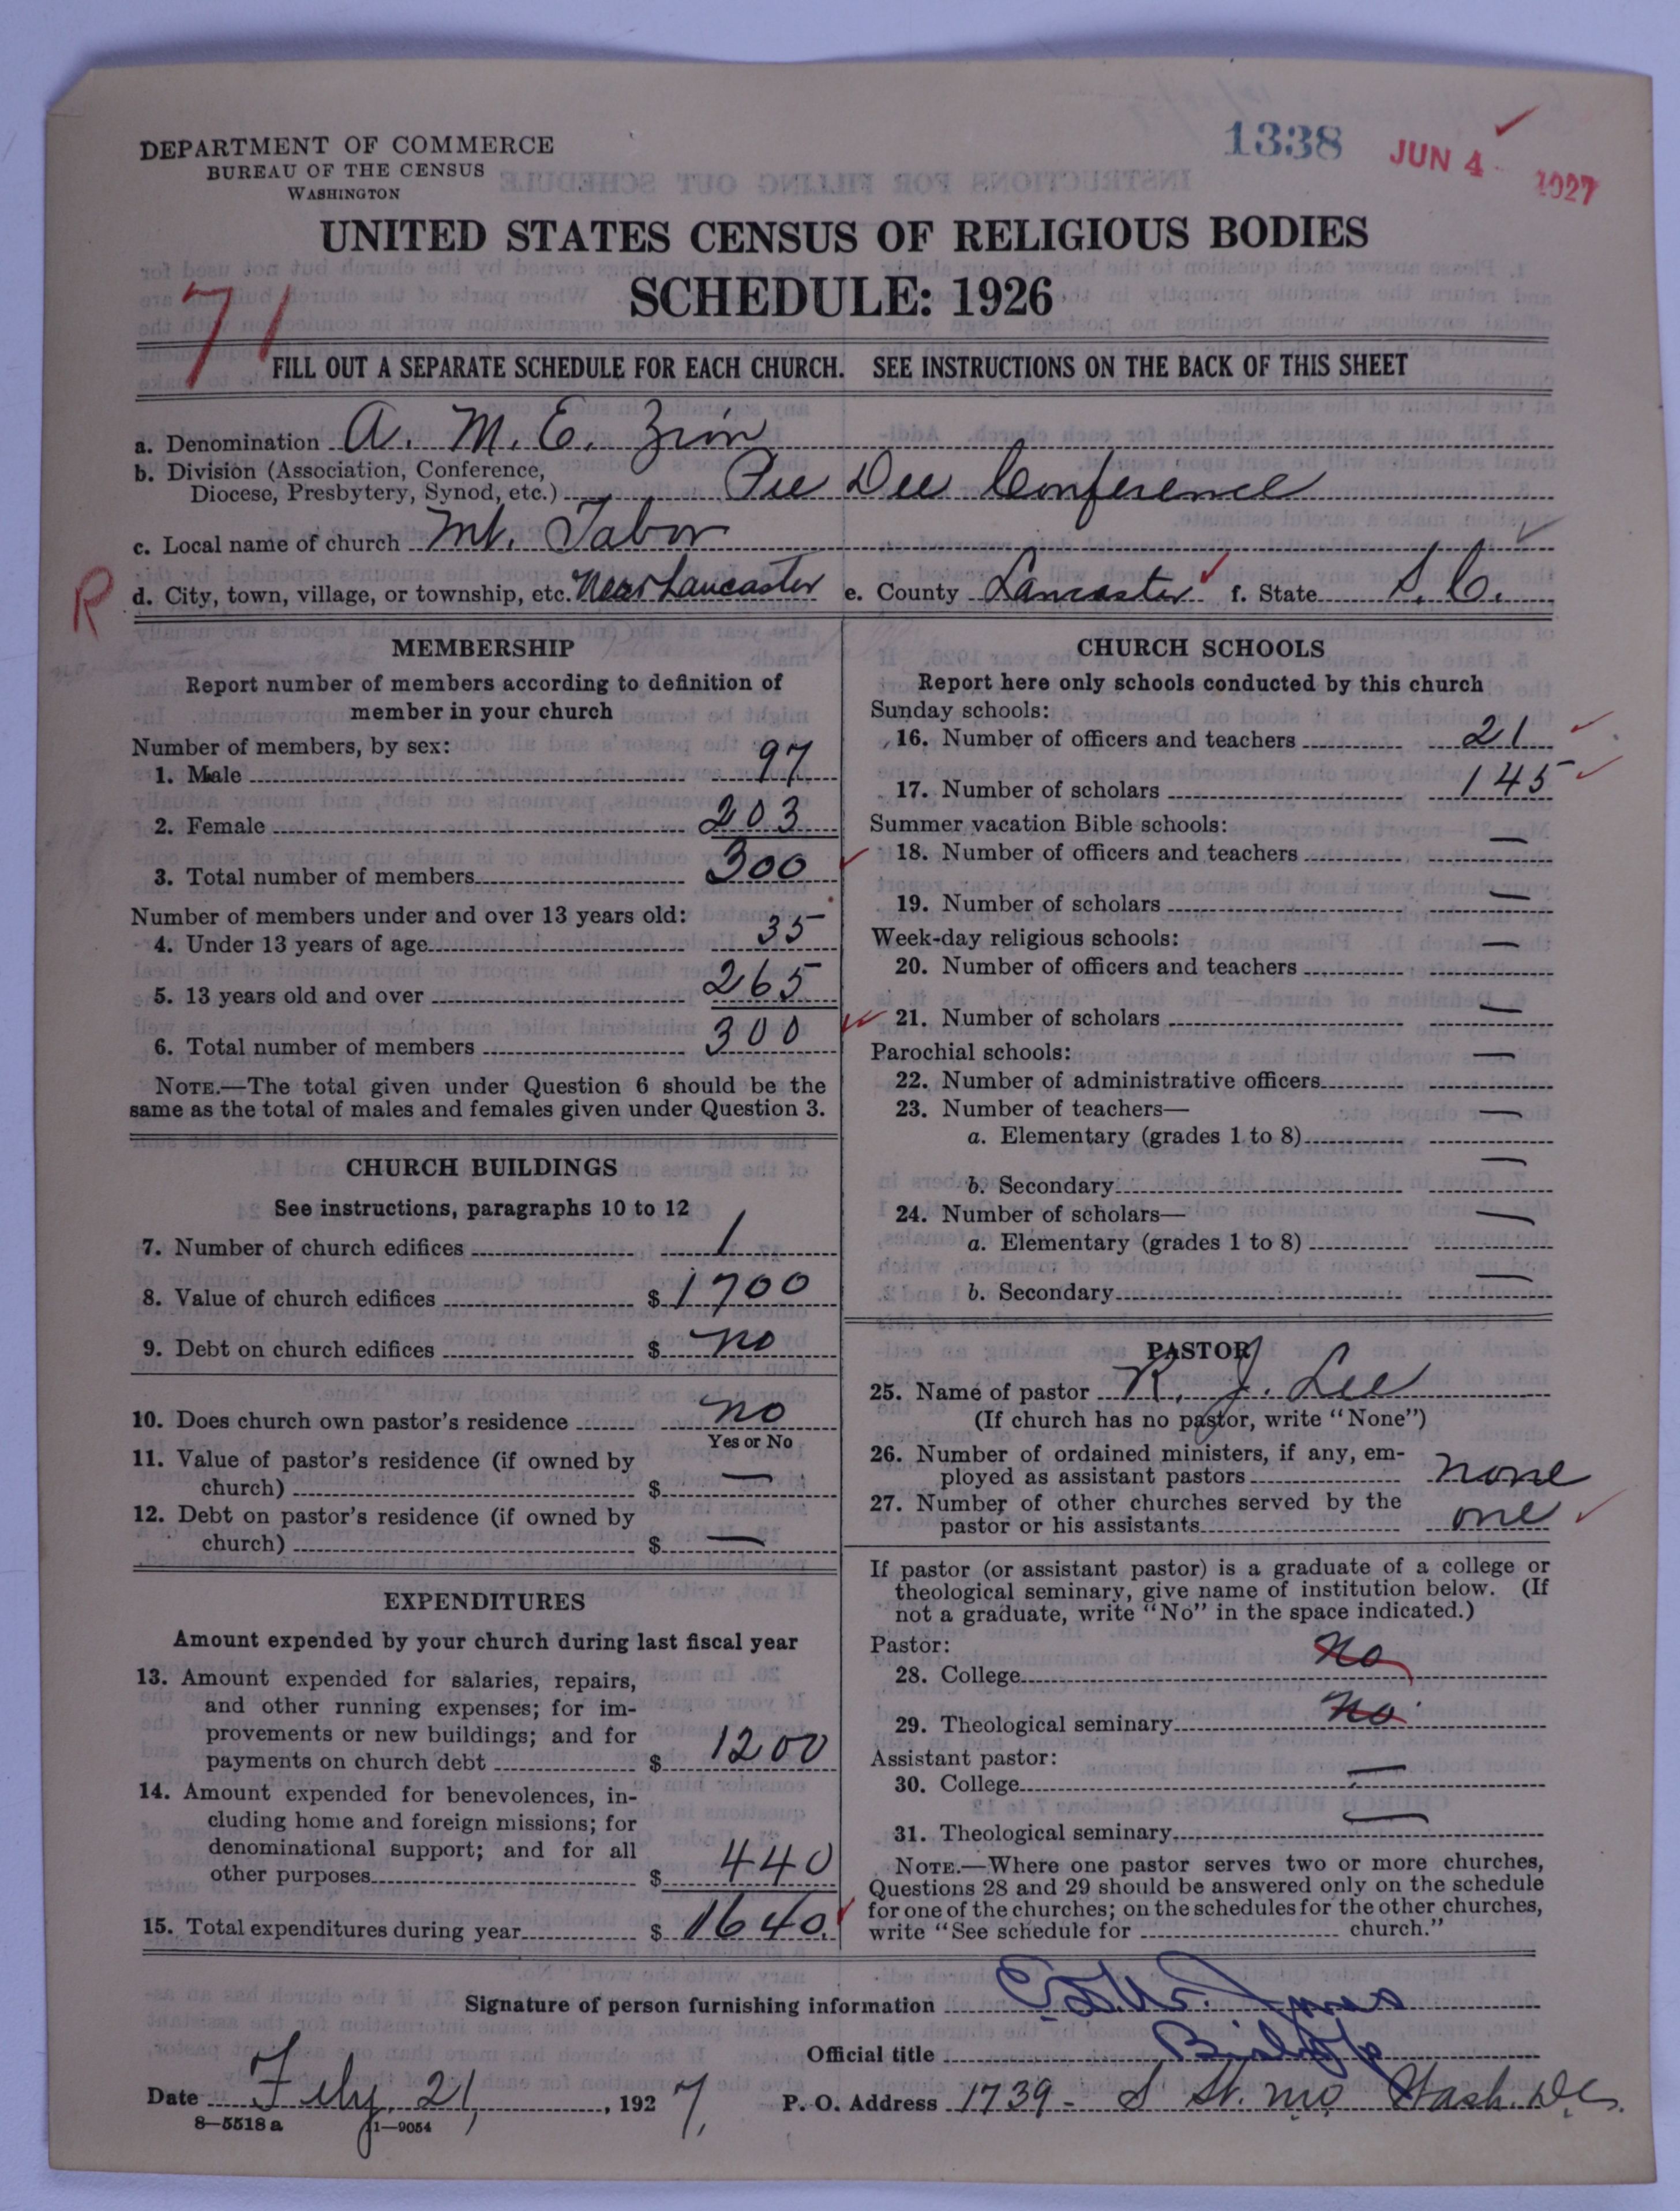 1338
JUN 4 1927
DEPARTMENT OF COMMERCE
BUREAU OF THE CENSUS
WASHINGTON
UNITED STATES CENSUS OF RELIGIOUS BODIES
SCHEDULE: 1926
71
FILL OUT A SEPARATE SCHEDULE FOR EACH CHURCH. SEE INSTRUCTIONS ON THE BACK OF THIS SHEET
a. Denomination A. M. E. Zion
b. Division (Association, Conference,
Diocese, Presbytery, Synod, etc.) Pee Dee Conference
c. Local name of church Mt. Tabor
R d. City, town, village, or township, etc. Near Lancaster e. County Lancaster f. State S. C.
MEMBERSHIP
Report number of members according to definition of
member in your church
Number of members, by sex:
1. Male 97
2. Female 203
3. Total number of members 300
Number of members under and over 13 years old:
4. Under 13 years of age 35
5. 13 years old and over 265
6. Total number of members 300
NOTE.—The total given under Question 6 should be the
same as the total of males and females given under Question 3.
CHURCH BUILDINGS
See instructions, paragraphs 10 to 12
7. Number of church edifices 1
8. Value of church edifices $ 1700
9. Debt on church edifices $ no
10. Does church own pastor's residence no
Yes or No
11. Value of pastor's residence (if owned by
church) $ —
12. Debt on pastor's residence (if owned by
church) $ —
EXPENDITURES
Amount expended by your church during last fiscal year
13. Amount expended for salaries, repairs,
and other running expenses; for im-
provements or new buildings; and for
payments on church debt $ 1200
14. Amount expended for benevolences, in-
cluding home and foreign missions; for
denominational support; and for all
other purposes $ 440
15. Total expenditures during year $ 1640.
CHURCH SCHOOLS
Report here only schools conducted by this church
Sunday schools:
16. Number of officers and teachers 21
17. Number of scholars 145
Summer vacation Bible schools:
18. Number of officers and teachers —
19. Number of scholars —
Week-day religious schools:
20. Number of officers and teachers —
21. Number of scholars —
Parochial schools:
22. Number of administrative officers —
23. Number of teachers—
a. Elementary (grades 1 to 8) —
b. Secondary —
24. Number of scholars—
a. Elementary (grades 1 to 8) —
b. Secondary —
PASTOR
25. Name of pastor R. J. Lee
(If church has no pastor, write "None")
26. Number of ordained ministers, if any, em-
ployed as assistant pastors none
27. Number of other churches served by the
pastor or his assistants one
If pastor (or assistant pastor) is a graduate of a college or
theological seminary, give name of institution below. (If
not a graduate, write "No" in the space indicated.)
Pastor:
28. College No
29. Theological seminary No
Assistant pastor:
30. College —
31. Theological seminary —
NOTE.—Where one pastor serves two or more churches,
Questions 28 and 29 should be answered only on the schedule
for one of the churches; on the schedules for the other churches,
write "See schedule for church."
Signature of person furnishing information Jones
Official title Bishop
Date Feby. 21, 1927. P. O. Address 1739 - S St. N.W. Wash. D.C.
8—5518 a 11—9054